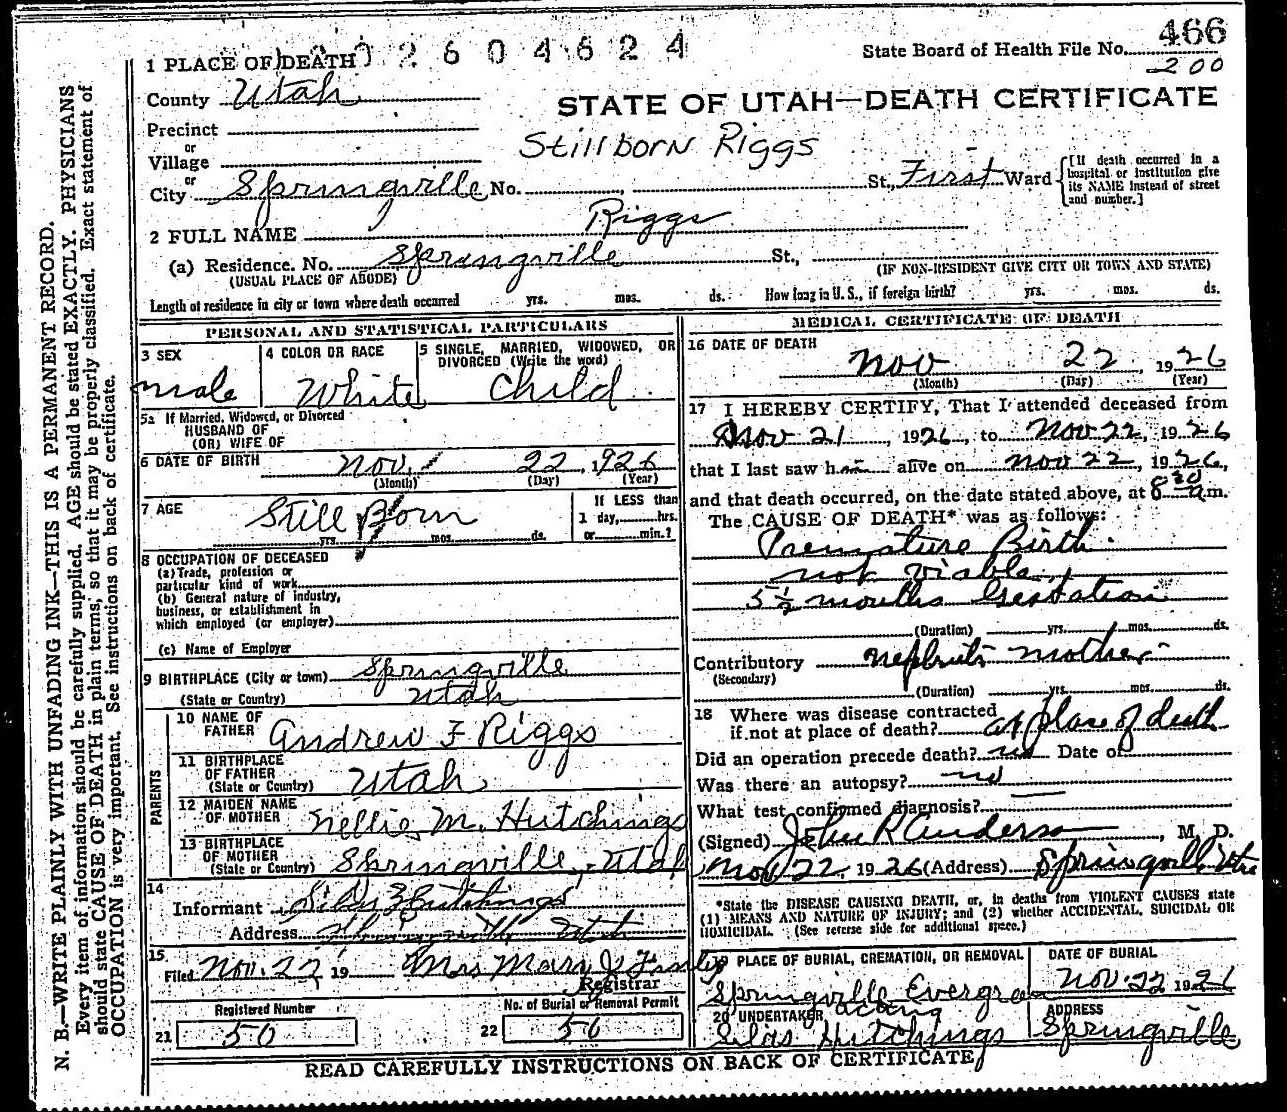 0 2 6 0 4 6 2 4
466
State Board of Health File No.
200
1 PLACE OF DEATH
County Utah
STATE OF UTAH—DEATH CERTIFICATE
Precinct
or
Village
Stillborn Riggs
or
City Springville No. St., First Ward
[If death occurred in a hospital or institution give its NAME instead of street and number.]
2 FULL NAME Riggs
(a) Residence. No. Springville St.,
(USUAL PLACE OF ABODE) (IF NON-RESIDENT GIVE CITY OR TOWN AND STATE)
Length of residence in city or town where death occurred yrs. mos. ds. How long in U. S., if foreign birth? yrs. mos. ds.
PERSONAL AND STATISTICAL PARTICULARS
3 SEX
male
4 COLOR OR RACE
White
5 SINGLE, MARRIED, WIDOWED, OR DIVORCED (Write the word)
Child
5a If Married, Widowed, or Divorced
HUSBAND OF
(OR) WIFE OF
6 DATE OF BIRTH Nov. 22, 1926
(Month) (Day) (Year)
7 AGE
Still Born
yrs. mos. ds.
If LESS than
1 day, hrs.
or min.?
8 OCCUPATION OF DECEASED
(a) Trade, profession or
particular kind of work
(b) General nature of industry,
business, or establishment in
which employed (or employer)
(c) Name of Employer
9 BIRTHPLACE (City or town) Springville
(State or Country) Utah
PARENTS
10 NAME OF
FATHER Andrew F Riggs
11 BIRTHPLACE
OF FATHER
(State or Country) Utah
12 MAIDEN NAME
OF MOTHER Nellie M. Hutchings
13 BIRTHPLACE
OF MOTHER
(State or Country) Springville, Utah
14
Informant Silas Hutchings
Address Springville Utah
15
Filed Nov. 22 19 Mrs Mary J
Registrar
Registered Number
21 50
No. of Burial or Removal Permit
22 50
MEDICAL CERTIFICATE OF DEATH
16 DATE OF DEATH
Nov 22, 1926
(Month) (Day) (Year)
17 I HEREBY CERTIFY, That I attended deceased from
Nov 21, 1926, to Nov 22, 1926
that I last saw him alive on Nov 22, 1926,
and that death occurred, on the date stated above, at 8 30 a m.
The CAUSE OF DEATH* was as follows:
Premature Birth
not viable
5 ½ months Gestation
(Duration) yrs. mos. ds.
Contributory nephritis mother
(Secondary)
(Duration) yrs. mos. ds.
18 Where was disease contracted
if not at place of death? at place of death
Did an operation precede death? no Date of
Was there an autopsy? no
What test confirmed diagnosis?
(Signed) John R Anderson, M. D.
Nov 22, 1926 (Address) Springville Utah
*State the DISEASE CAUSING DEATH, or, in deaths from VIOLENT CAUSES state
(1) MEANS AND NATURE OF INJURY; and (2) whether ACCIDENTAL, SUICIDAL OR
HOMICIDAL. (See reverse side for additional space.)
19 PLACE OF BURIAL, CREMATION, OR REMOVAL
Springville Evergreen
DATE OF BURIAL
Nov. 22 1926
20 UNDERTAKER, acting
Silas Hutchings
ADDRESS
Springville
READ CAREFULLY INSTRUCTIONS ON BACK OF CERTIFICATE
N. B.—WRITE PLAINLY WITH UNFADING INK—THIS IS A PERMANENT RECORD.
Every item of information should be carefully supplied. AGE should be stated EXACTLY. PHYSICIANS
should state CAUSE OF DEATH in plain terms, so that it may be properly classified. Exact statement of
OCCUPATION is very important. See instructions on back of certificate.